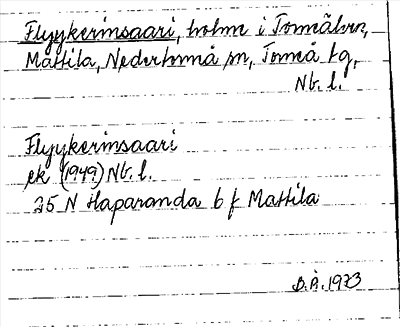 Flyykerinsaari, holme i Torneälven,
Mattila, Nedertorneå sn, Torneå tg,
Nb. l.
Flyykerinsaari
ek (1949) Nb. l.
25 N Haparanda 6 f Mattila
B.Å. 1973